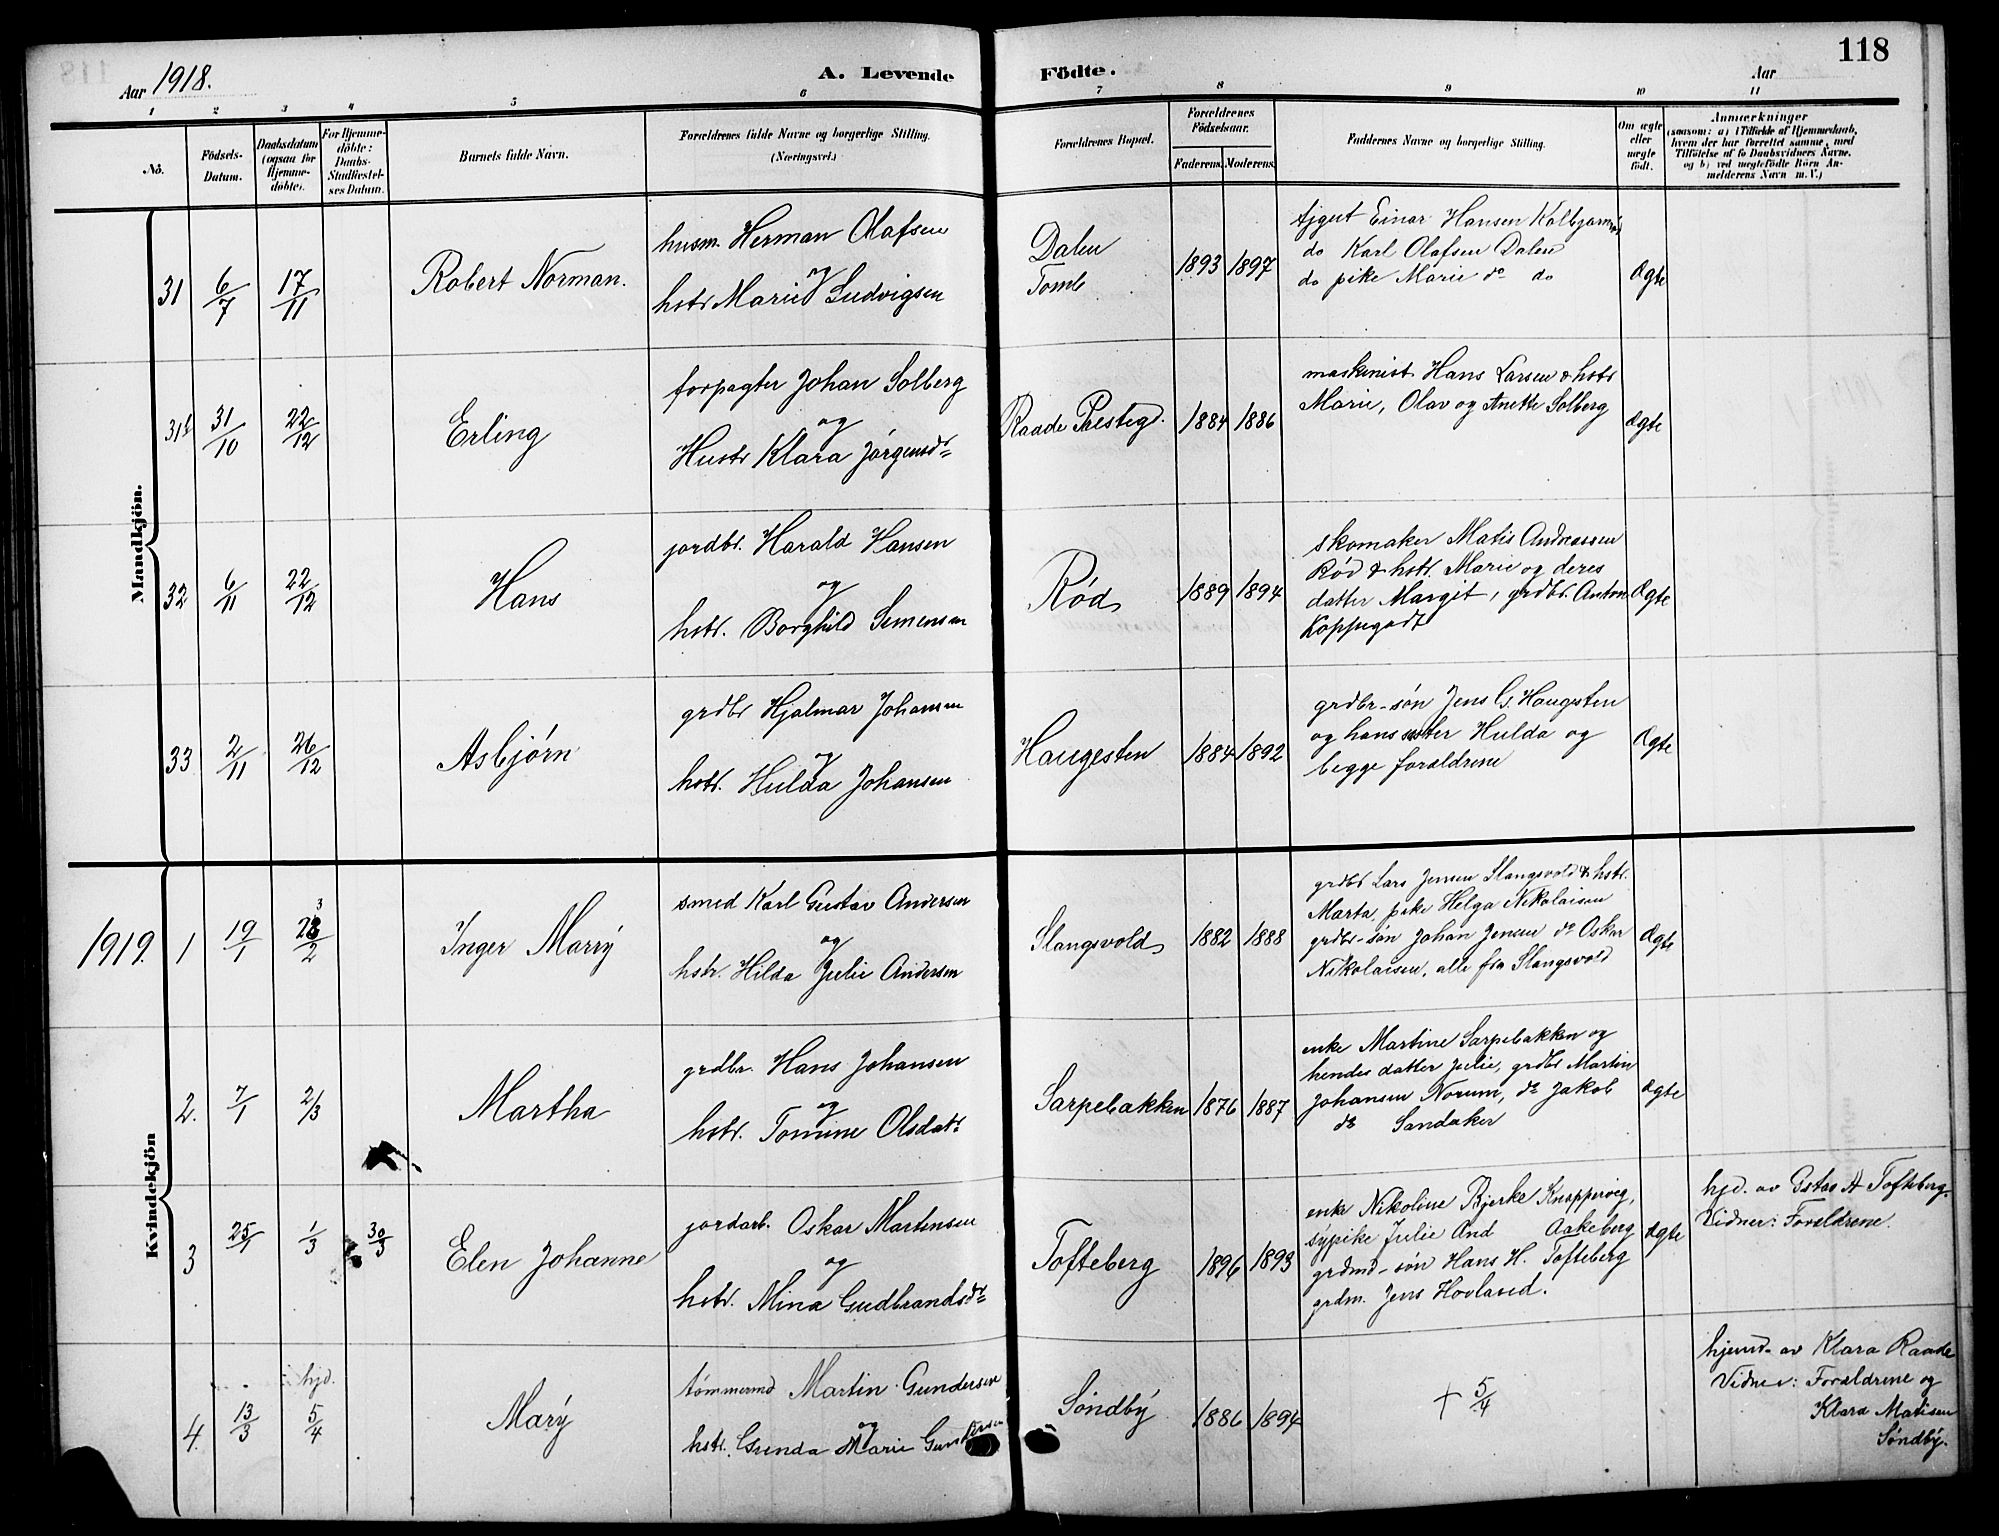 118
Aar 1918.
A. Levende Födte.
Aar
1 2 3 4 5 6 7 8 9 10 11
No.
Födsels-
Datum.
Daabsdatum
(ogsaa for
Hjemme-
döbte).
For Hjemme-
döbte:
Daabs-
Stadfæstel-
ses Datum.
Barnets fulde Navn.
Forældrenes fulde Navne og borgerlige Stilling.
(Næringsvei.)
Forældrenes Bopæl.
Forældrenes
Födselsaar.
Faderens. Moderens.
Faddernes Navne og borgerlige Stilling.
Om ægte
eller
uægte
født.
Anmærkninger
(saasom: a) i Tilfælde af Hjemmedaab,
hvem der har forrettet samme, med
Tilföielse af to Daabsvidners Navne.
og b) ved uægtefödte Börn An-
melderens Navn m. V.)
Mandkjön.
31 6/7 17/11 Robert Norman.
husm. Herman Olafsen
og
hstr Marie Ludvigsen
Dalen
Tomb
1893 1897
tjgut Einar Hansen
do Karl Olafsen Dalen
do pike Marie do do
Ægte
31b 31/10 22/12 Erling
forpagter Johan Solberg
og
Hustr Klara Jørgensdr
Raade Prestegd. 1884 1886
maskinist Hans Larsen & hstr
Marie, Olav og Anette Solberg
Ægte
32 6/11 22/12 Hans
jordbr. Harald Hansen
og
hstr. Borghild Simensen
Rød 1889 1894
skomaker Matis Andreassen
Rød & hstr. Marie og deres
datter Margit, grdbr. Anton
Koppegodt
Ægte
33 2/11 26/12 Asbjørn
grdbr Hjalmar Johansen
og
hstr. Hulda Johansen
Haugesten 1884 1892
grdbr-søn Jens G. Haugesten
og hans søster Hulda og
begge forældrene
Ægte
1919.
Kvindekjön
1 19/1 23/2 Inger Marry
smed Karl Gustav Andersen
og
hstr. Hilda Julie Andersen
Slangsvold 1882 1888
grdbr Lars Jensen Slangsvold & hstr.
Marta, pike Helga Nikolaisen
grdbr-søn Johan Jensen do Oskar
Nikolaisen, alle fra Slangsvold
Ægte
2. 7/1 2/3 Martha
grdbr. Hans Johansen
og
hstr. Tomine Olsdatr
Sarpebakken 1876 1887
enke Martine Sarpebakken og
hendes datter Julie, grdbr Martin
Johansen Norum, do Jakob
do Sandaker
Ægte
3 25/1 1/3 30/3 Elen Johanne
jordarb. Oskar Martinsen
og
hstr. Mina Gudbrandsdr
Tofteberg 1896 1893
enke Nikoline Bjerke Knappervig,
sypike Julie And Aakeberg
grdmd-søn Hans H. Tofteberg
grdm. Jens Hovlarud.
Ægte
hjd. av Gstas A Tofteberg.
Vidner: Foreldrene.
4. 13/3 hjd. 5/4 Mary
tømmermd Martin Gundersen
og
hstr. Gunda Marie Gundersen
Søndby 1886 1894
† 5/4
hjemd. av Klara Raade
Vidner: Forældrene og
Klara Matisen
Søndby.